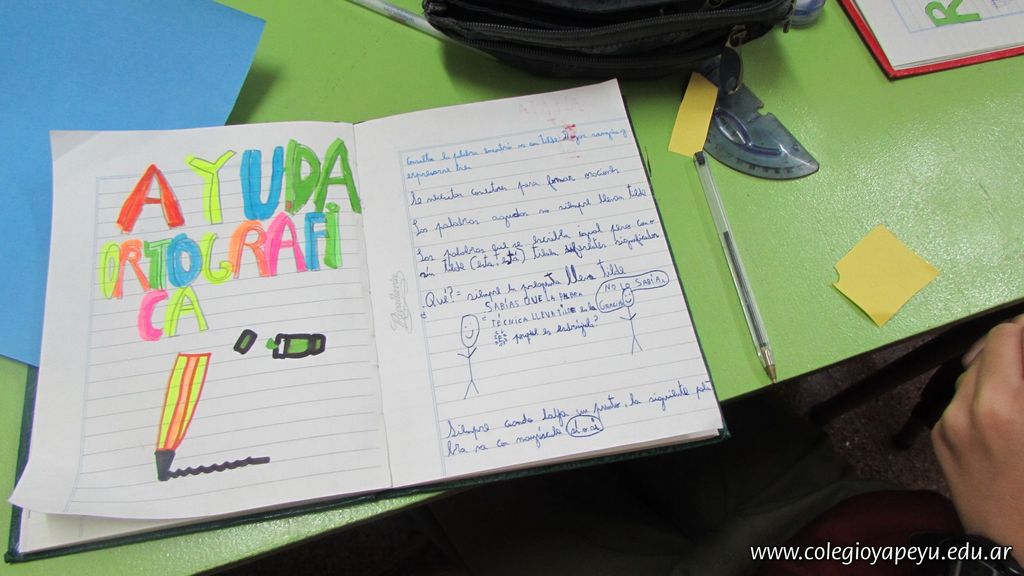 AYUDA
ORTOGRAFI
CA
Consulta la palabra va con tilde
Se necesitan conectores para formar oraciones
Las palabras agudas no siempre llevan tilde
Las palabras que se escriben igual pero con o
sin tilde (esta; está) tienen diferentes significados
Qué? = siempre la pregunta lleva tilde
SABÍAS QUE LA PALABRA
TÉCNICA LLEVA TILDE en la
porque es esdrújula?
NO LO SABÍA.
GRACIAS
Rivadavia
Siempre cuando halla un punto, la siguiente pala
bra va con mayúscula
R
www.colegioyapeyu.edu.ar